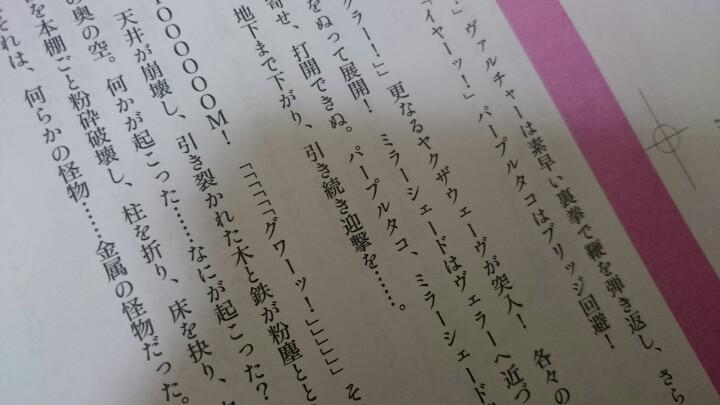 」ヴァルチャーは素早い裏拳で鞭を弾き返し、さら
「イヤーッ!」パープルタコはブリッジ回避!
グラー!」」更なるヤクザウェーヴが突入! 各々の
をぬって展開! ミラーシェードはヴェラーへ近づ
寄せ、打開できぬ。パープルタコ、ミラーシェード
地下まで下がり、引き続き迎撃を……。
「「「「「グワーッ!」」」」」そ
OOOOOOM!
天井が崩壊し、引き裂かれた木と鉄が粉塵とと
の奥の空。何かが起こった……なにが起こった?
を本棚ごと粉砕破壊し、柱を折り、床を抉り、
それは、何らかの怪物……金属の怪物だった。